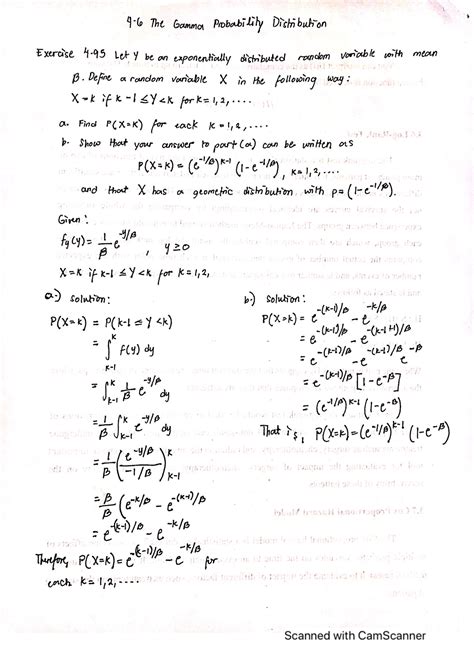 4-6 The Gamma Probability Distribution
Exercise 4.95 Let Y be an exponentially distributed random variable with mean
β. Define a random variable X in the following way:
X=k if k-1 ≤ Y < k for k=1,2,....
a. Find P(X=k) for each k=1,2,....
b. Show that your answer to part (a) can be written as
P(X=k) = (e^{-1/β})^{k-1} (1-e^{-1/β}), k=1,2,....
and that X has a geometric distribution with p=(1-e^{-1/β}).
Given:
f_y(y) = 1/β e^{-y/β}, y ≥ 0
X=k if k-1 ≤ Y < k for k=1,2,
a.) solution:
P(X=k) = P(k-1 ≤ Y < k)
= ∫_{k-1}^{k} f(y) dy
= ∫_{k-1}^{k} 1/β e^{-y/β} dy
= 1/β ∫_{k-1}^{k} e^{-y/β} dy
= 1/β (e^{-y/β} / -1/β)_{k-1}^{k}
= β/β (e^{-k/β} - e^{-(k-1)/β})
= e^{-(k-1)/β} - e^{-k/β}
Therefore, P(X=k) = e^{-(k-1)/β} - e^{-k/β} for
each k=1,2,....
b.) solution:
P(X=k) = e^{-(k-1)/β} - e^{-k/β}
= e^{-(k-1)/β} - e^{-(k-1+1)/β}
= e^{-(k-1)/β} - e^{-(k-1)/β} e^{-β}
= e^{-(k-1)/β} [1-e^{-β}]
= (e^{-1/β})^{k-1} (1-e^{-β})
That is, P(X=k) = (e^{-1/β})^{k-1} (1-e^{-β})
Scanned with CamScanner